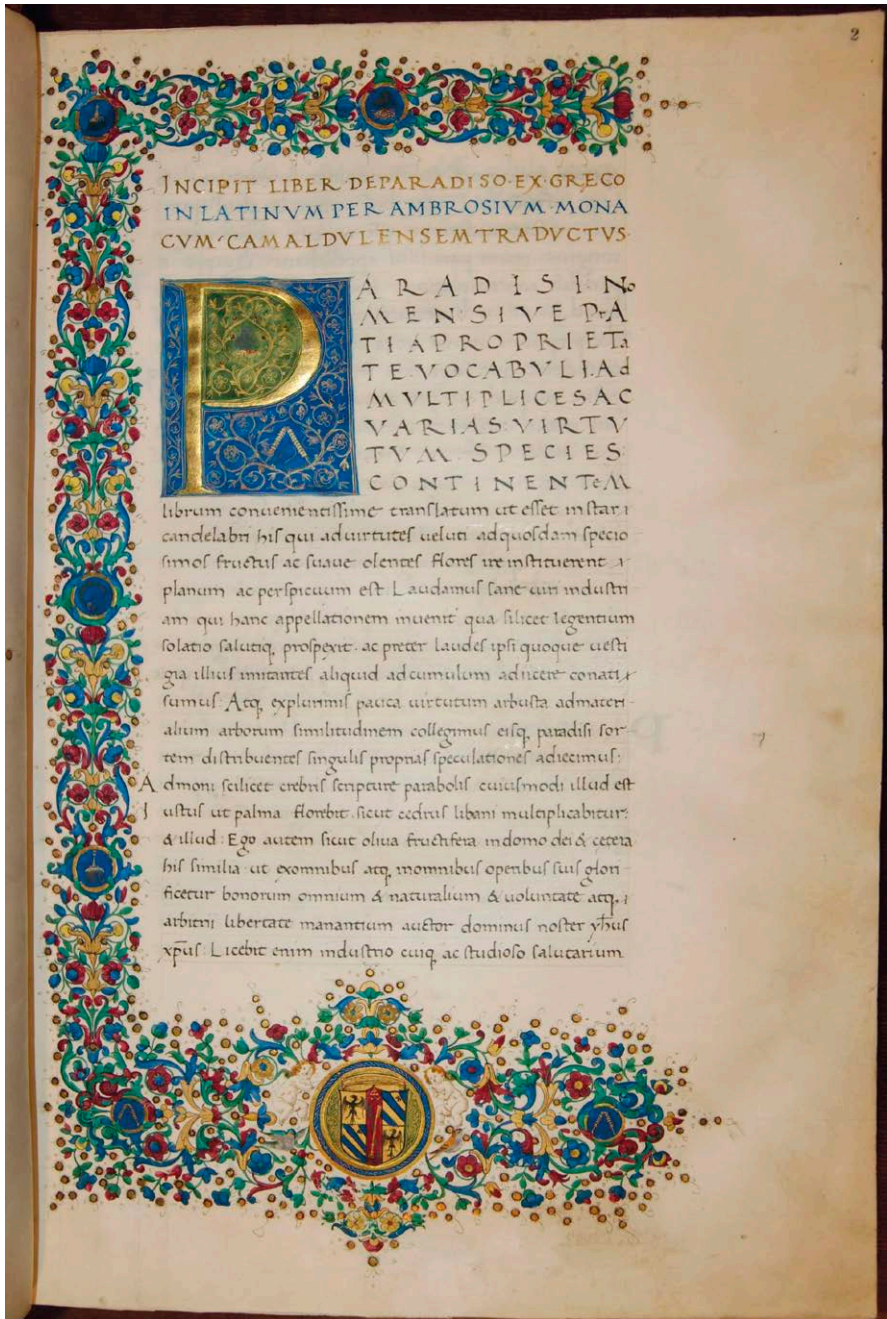 2
INCIPIT LIBER DEPARADISO·EX·GRECO
IN LATINVM PER AMBROSIVM·MONA
CVM·CAMALDVLENSEM TRADVCTVS·
PARADISI NO
MEN SIVE PrA
TI A PROPRIETa
TE VOCABVLI Ad
MVLTIPLICES AC
VARIAS VIRTV
TVM SPECIES
CONTINENTeM
librum convenientissime translatum ut esset instar
candelabri his qui ad virtutes veluti ad quosdam specio
simos fructus ac suave olentes flores ire instituerent
planum ac perspicuum est. Laudamus sane viri industri
am qui hanc appellationem invenit qua silicet legentium
solatio salutiq, prospexit. ac preter laudes ipsi quoque vesti
gia illius imitantes aliquid ad cumulum adiicere conati
sumus. Atq, ex plurimis pauca virtutum arbusta ad materi
alium arborum similitudinem collegimus eisq, paradisi sor
tem distribuentes singulis proprias speculationes adiecimus:
Admoni scilicet crebris scripture parabolis cuiusmodi illud est
Iustus ut palma florebit. sicut cedrus libani multiplicabitur:
& illud. Ego autem sicut oliva fructifera in domo dei & cetera
his similia ut ex omnibus atq, in omnibus operibus suis glori
ficetur bonorum omnium & naturalium & voluntate atq,
arbitrii libertate manantium auctor dominus noster yhus
xpus. Licebit enim industrio cuiq, ac studioso salutarium